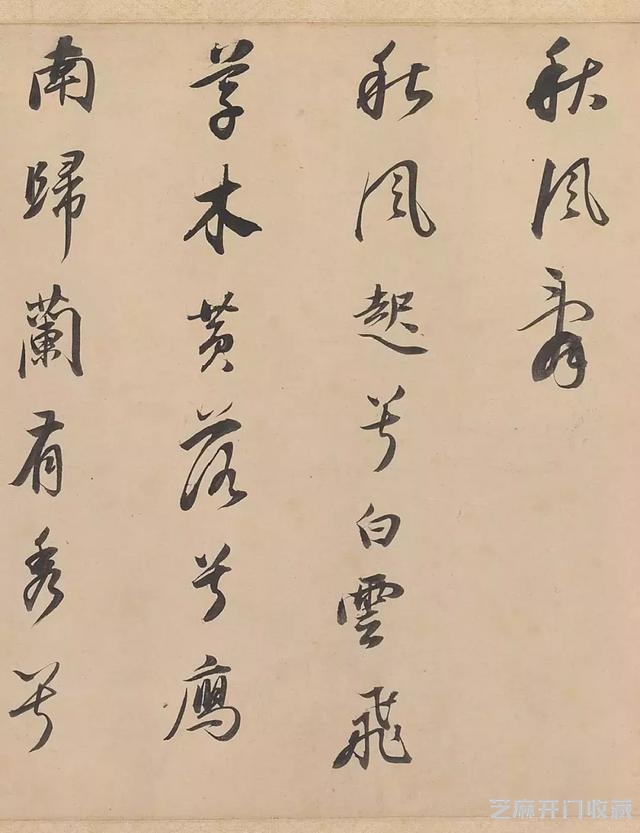 秋風辭
秋風起兮白雲飛
草木黃落兮鴈
南歸蘭有秀兮
芝麻开门收藏